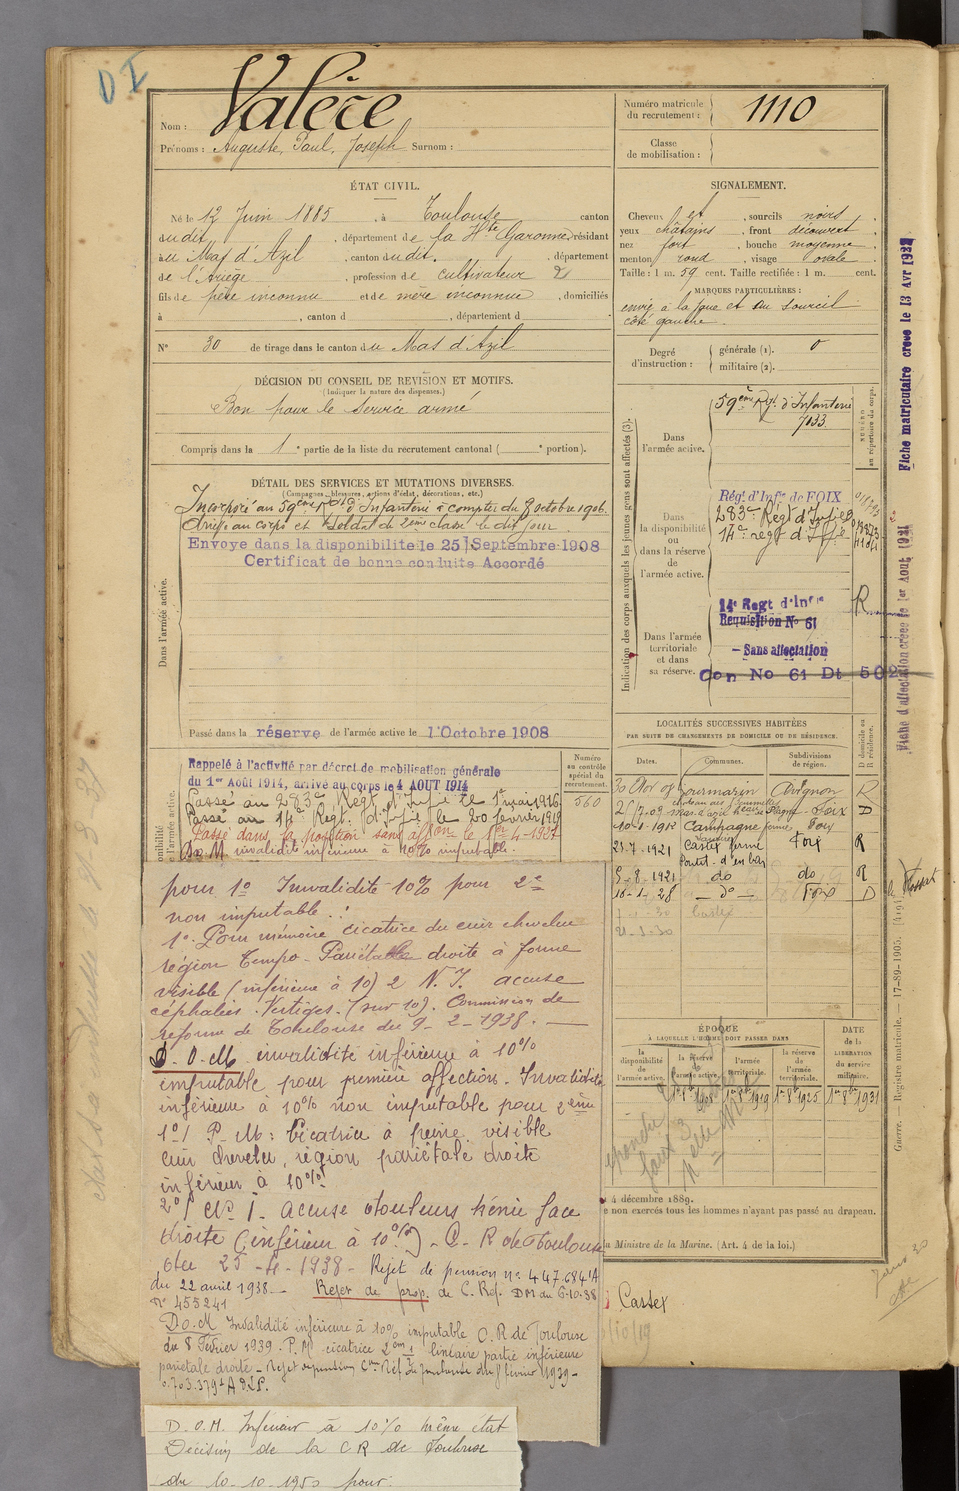 D I
Nom : Valère
Prénoms : Auguste, Paul, Joseph Surnom :
Numéro matricule
du recrutement : 1110
Classe
de mobilisation :
ÉTAT CIVIL.
Né le 12 Juin 1885, à Toulouse canton
dudit, département de la Hte Garonne, résidant
au Mas d'Azil, canton dudit, département
de l'Ariège, profession de cultivateur
fils de père inconnu et de mère inconnue, domiciliés
à , canton d , département d
N° 30 de tirage dans le canton du Mas d'Azil
SIGNALEMENT.
Cheveux et , sourcils noirs
yeux châtains , front découvert
nez fort , bouche moyenne
menton rond , visage ovale
Taille : 1 m. 59 cent. Taille rectifiée : 1 m. cent.
MARQUES PARTICULIÈRES :
envie à la joue et au sourcil
côté gauche
Degré
d'instruction :
générale (1). 0
militaire (2).
DÉCISION DU CONSEIL DE REVISION ET MOTIFS.
(Indiquer la nature des dispenses.)
Bon pour le service armé
Compris dans la 1e partie de la liste du recrutement cantonal ( e portion).
DÉTAIL DES SERVICES ET MUTATIONS DIVERSES.
(Campagnes, blessures, actions d'éclat, décorations, etc.)
Incorporé au 59ème Rgt d'Infanterie à compter du 8 octobre 1906.
Arrivé au corps et soldat de 2ème classe le dit jour
Envoyé dans la disponibilité le 25 Septembre 1908
Certificat de bonne conduite Accordé
Dans l'armée active.
Passé dans la réserve de l'armée active le 1 Octobre 1908
Indication des corps auxquels les jeunes gens sont affectés (3).
NUMÉRO
au répertoire du corps.
Dans
l'armée active.
59ème Rgt d'Infanterie
7033
Dans
la disponibilité
ou
dans la réserve
de
l'armée active.
Régt d'Infie de FOIX
283e Régt d'Infie
14e regt d'Infie
Dans l'armée
territoriale
et dans
sa réserve.
14e Regt d'Infie
Requisition No 61
- Sans affectation
Con No 61 Dt 502
Fiche matriculaire créée le 13 Avr
Fiche d'affectation créée le 1er Aout
Rappelé à l'activité par décret de mobilisation générale
du 1er Août 1914, arrivé au corps le 4 AOUT 1914
Passé au 283e Régt d'Infie le 1er mai 1916
Passé au 14e Regt. d'Infie le 20 février 1919
Passé dans la position sans affon le 1er-4-1927
D.O.M. invalidité inférieure à 10% imputable.
Numéro
au contrôle
spécial du
recrutement.
560
LOCALITÉS SUCCESSIVES HABITÉES
PAR SUITE DE CHANGEMENTS DE DOMICILE OU DE RÉSIDENCE.
Dates. Communes. Subdivisions
de région.
D domicile ou
R résidence.
Lourmarin Avignon R
Foix D
10-1-1912 Campagne Foix
21-7-1921 Castex ferme Foix R
5-8-1921 do do R
16-1-28 - do - Foix D
Castex
21-3-30
ÉPOQUE
À LAQUELLE L'HOMME DOIT PASSER DANS
la
disponibilité
de
l'armée active.
la réserve
de
l'armée active.
l'armée
territoriale.
la réserve
de
l'armée
territoriale.
DATE
de la
LIBÉRATION
du service
militaire.
1er 8bre 1908 1er 8bre 1919 1er 8bre 1925 1er 8bre 1931
4 décembre 1889.
e non exercés tous les hommes n'ayant pas passé au drapeau.
la Ministre de la Marine. (Art. 4 de la loi.)
Castex
Guerre. — Registre matricule. — 17-89-1905.
pour 1° Invalidité 10% pour 2e
non imputable.
1° Pour mémoire cicatrice du cuir chevelu
région Tempo-Pariétale droite à forme
visible (inférieure à 10) 2 N.I. accuse
céphalées. Vertiges. (sur 10). Commission de
réforme de Toulouse du 9-2-1938.
D.O.M. invalidité inférieure à 10%
imputable pour première affection. Invalidité
inférieure à 10% non imputable pour 2ème
1°/ P.M : Cicatrice à peine visible
cuir chevelu, région pariétale droite
inférieur à 10%
2°/ N.I. accuse douleurs hémie face
droite (inférieur à 10%) - C. R de Toulouse
du 25-4-1938 - Rejet de pension n° 447.684
du 22 avril 1938. Rejet de prop. de C. Réf. DM du 6-10-38
N° 455241
D.O.M Invalidité inférieure à 10% imputable C.R de Toulouse
du 8 Février 1939. P.M. cicatrice linéaire partie inférieure
pariétale droite - Rejet de pension
D.O.M. Inférieur à 10% même état
Décision de la C R de Toulouse
du 10-10-1950 pour